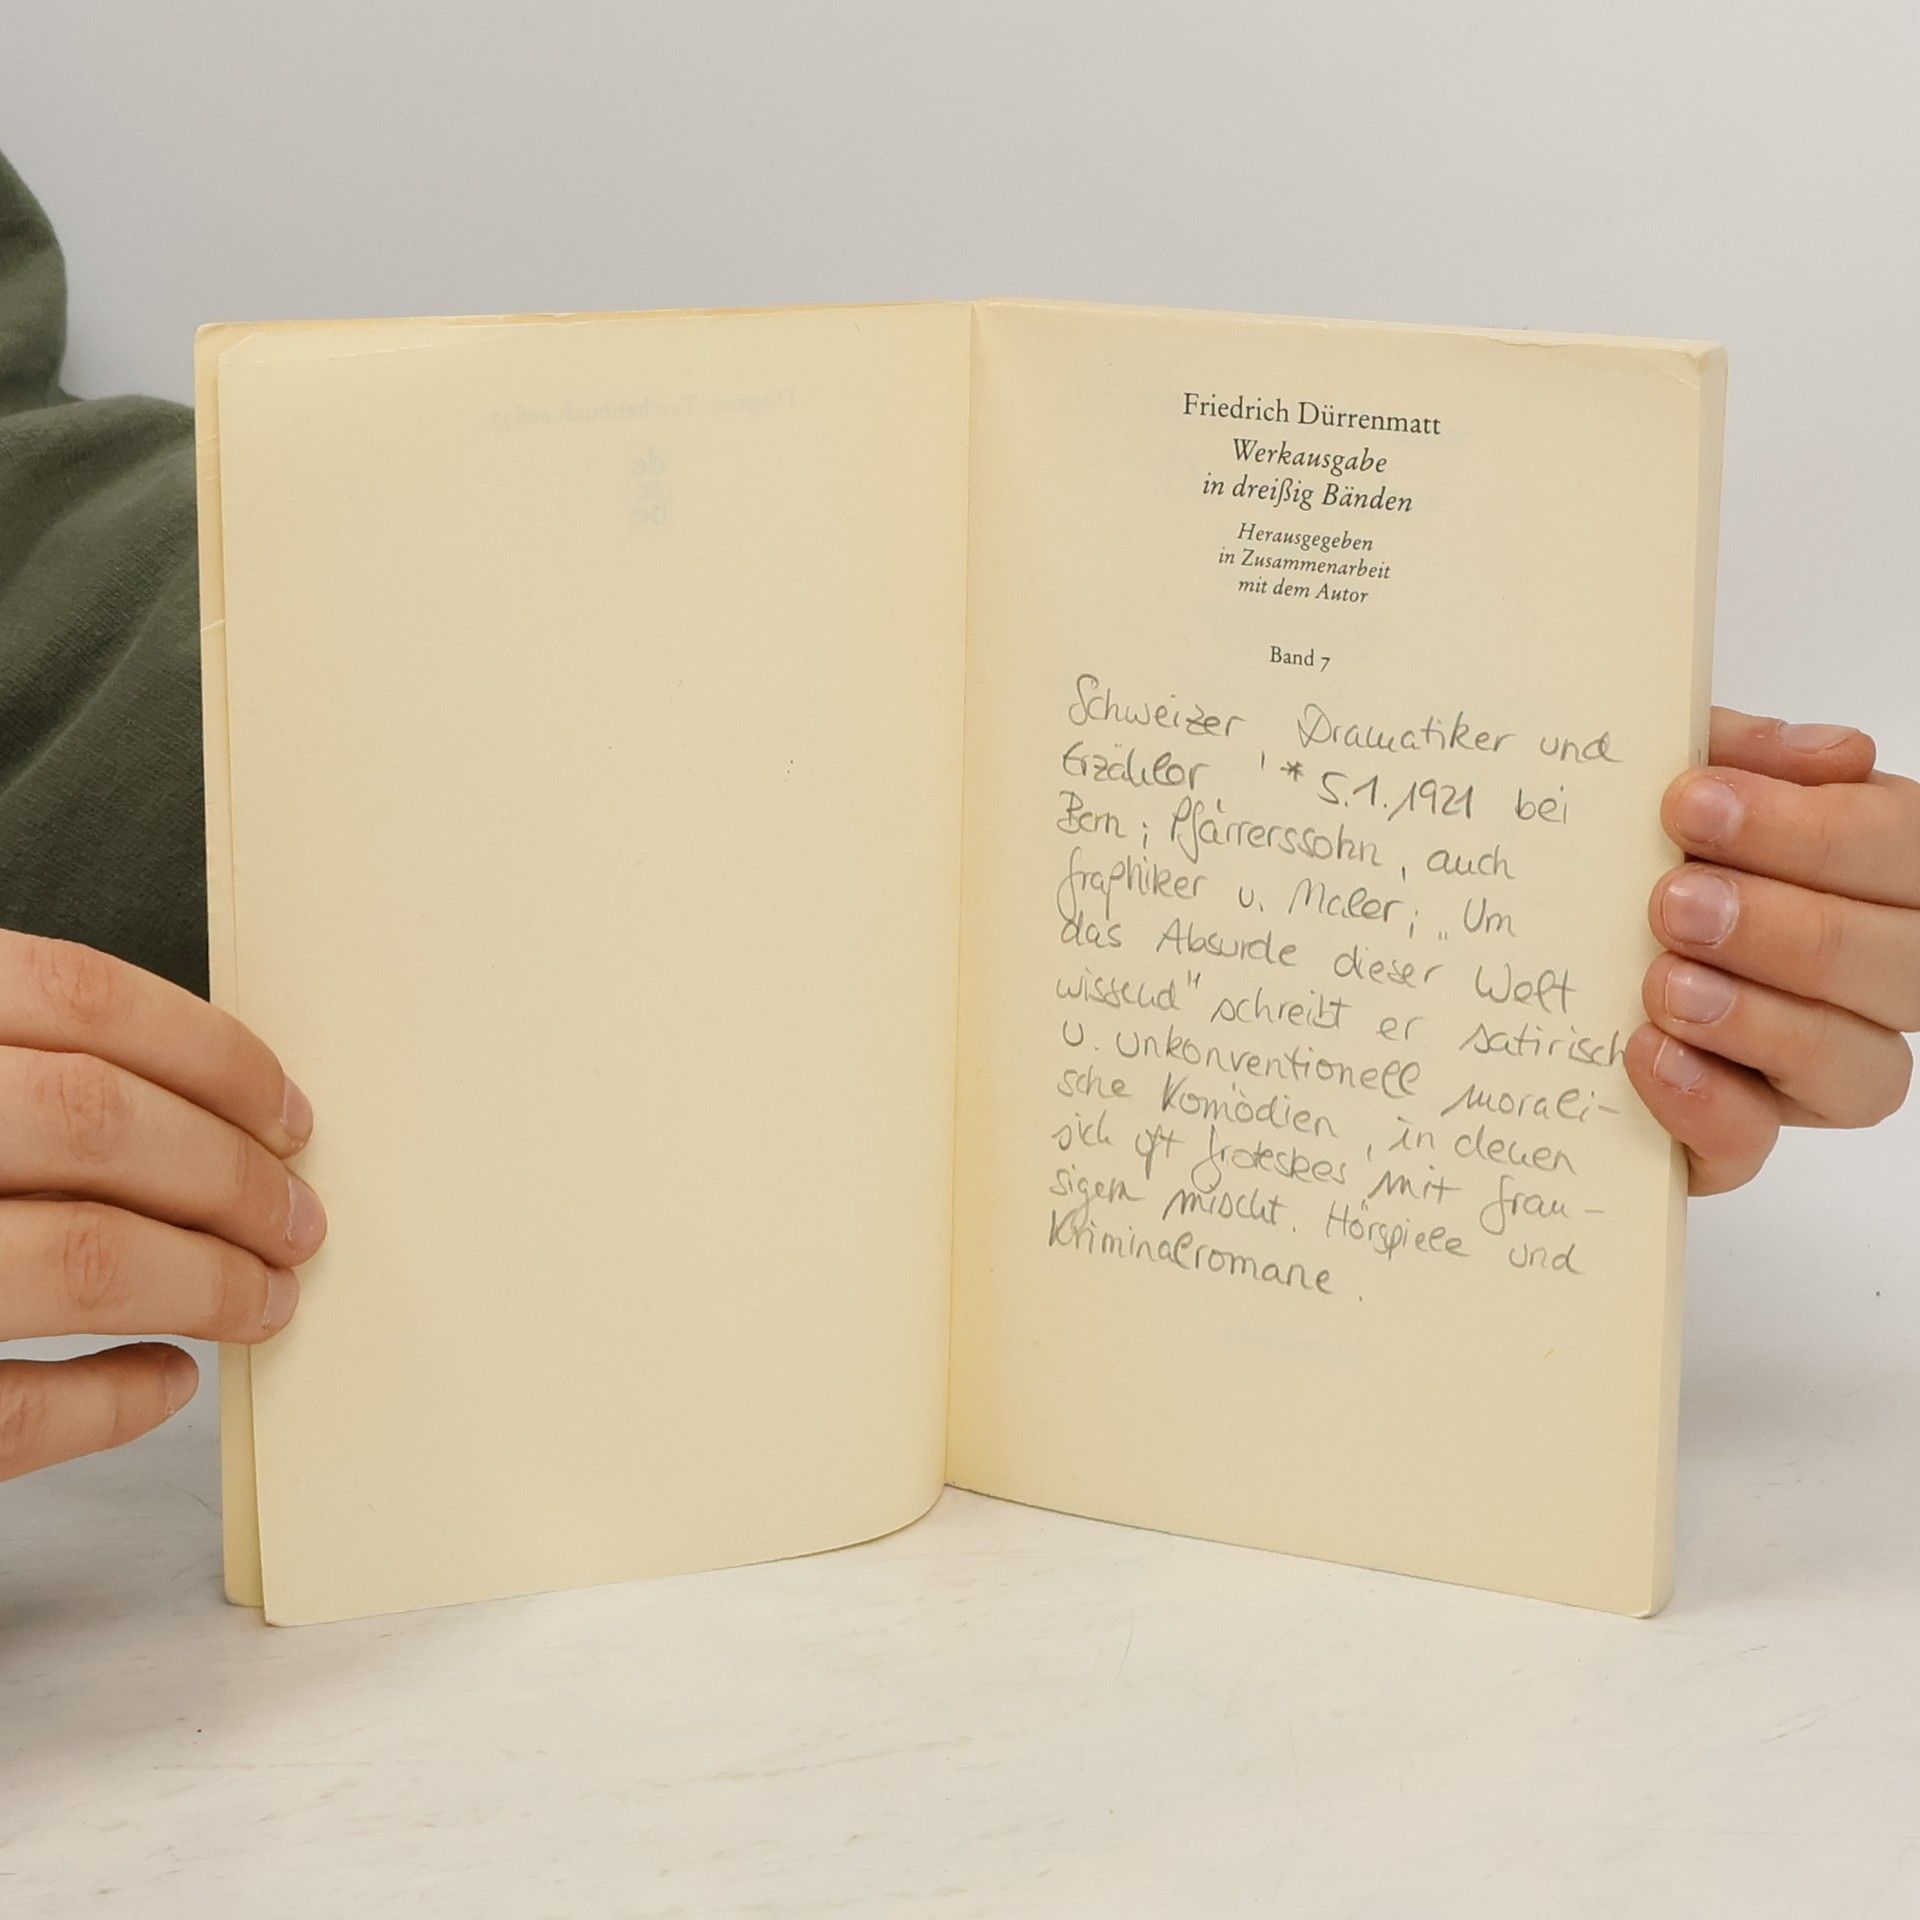 Friedrich Dürrenmatt
Werkausgabe
in dreißig Bänden
Herausgegeben
in Zusammenarbeit
mit dem Autor
Band 7
Schweizer Dramatiker und
Erzähler, * 5.1.1921 bei
Bern; Pfarrerssohn, auch
Graphiker u. Maler; „Um
das Absurde dieser Welt
wissend" schreibt er satirisch
u. unkonventionell morali-
sche Komödien, in denen
sich oft Groteskes mit Grau-
sigem mischt. Hörspiele und
Kriminalromane.